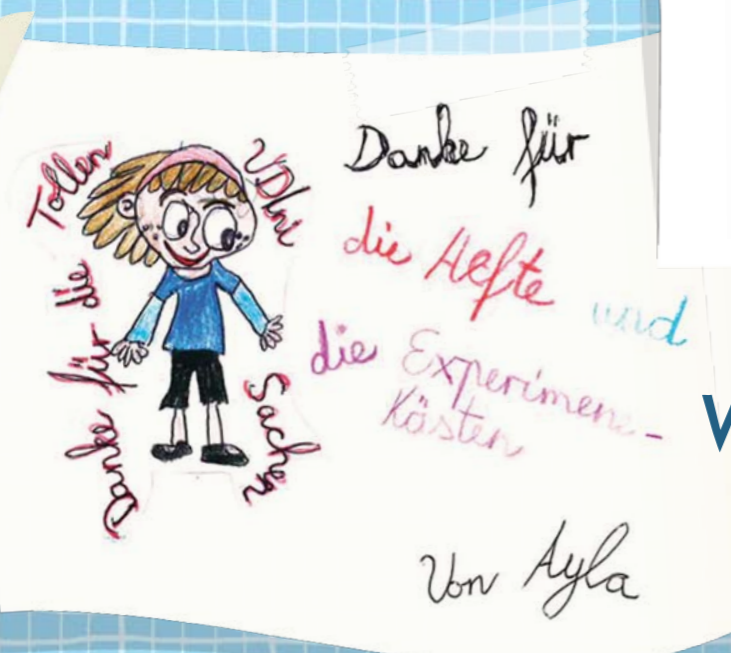 Danke für die
Tollen
VDIni
Sachen
Danke für
die Hefte und
die Experimene-
Kästen
Von Ayla
V